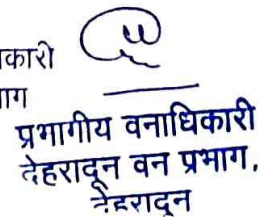 कारी
ाग
प्रभागीय वनाधिकारी
देहरादून वन प्रभाग,
देहरादून